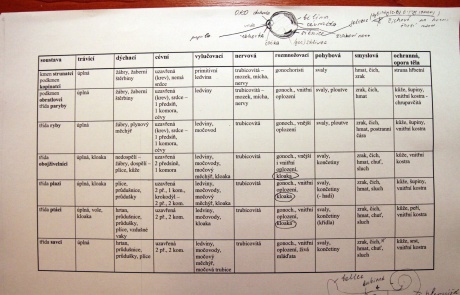 OKO
bělima
papila
čočka
soustava trávicí dýchací cévní vylučovací nervová rozmnožovací pohybová smyslová ochranná, opora těla
kmen strunatci podkmen kopinatci
úplná
žábry, žaberní štěrbiny
uzavřená (krev), srdce
primitivní ledvina
trubicovitá – mozek, mícha, nervy
gonochoristé
svaly
hmat, čich, zrak
struna hřbetní
podkmen obratlovci třída paryby
úplná
žábry, žaberní štěrbiny
uzavřená (krev), srdce – 1 předsíň, 1 komora, cévy
ledviny, močovod
trubicovitá – mozek, mícha, nervy
gonoch., vnitřní oplození
svaly, ploutve
zrak, čich, hmat
kůže, šupiny, vnitřní kostra – chrupavčitá
třída ryby
úplná
žábry, plynový měchýř
uzavřená (krev), srdce – 1 předsíň, 1 komora, cévy
ledviny, močovod
trubicovitá
gonoch., vnější oplození
svaly, ploutve
zrak, čich, hmat, postranní čára
kůže, šupiny, vnitřní kostra
třída obojživelníci
úplná, kloaka
nedospělí – žábry, dospělí – plíce, kůže
uzavřená 2 předsíně, 1 komora
ledviny, močovody, močový měchýř, kloaka
trubicovitá
gonoch., vnější i vnitřní oplození, kloaka
svaly, končetiny
zrak, čich, hmat, sluch
kůže, vnitřní kostra
třída plazi
úplná, kloaka
plíce, průdušnice, průdušky
uzavřená 2 př., 1 kom., krokodýl – 2 př., 2 kom.
ledviny, močovody, močový měchýř, kloaka
trubicovitá
gonoch., vnitřní oplození, kloaka
svaly, končetiny (- hadi)
zrak, čich, hmat, chuť, sluch
kůže, šupiny, vnitřní kostra
třída ptáci
úplná, vole, kloaka
hrtan, průdušnice, průdušky, plíce, vzdušné vaky
uzavřená 2 př., 2 kom.
ledviny, močovody, kloaka
trubicovitá
gonoch., vnitřní oplození, kloaka
svaly, končetiny (křídla)
zrak, čich, hmat, chuť, sluch
kůže, peří, vnitřní kostra
třída savci
úplná
hrtan, průdušnice, průdušky, plíce
uzavřená 2 př., 2 kom.
ledviny, močovody, močový měchýř, močová trubice
trubicovitá
gonoch., vnitřní oplození, živá mláďata
svaly, končetiny
zrak, čich, hmat, chuť, sluch
kůže, srst, vnitřní kostra